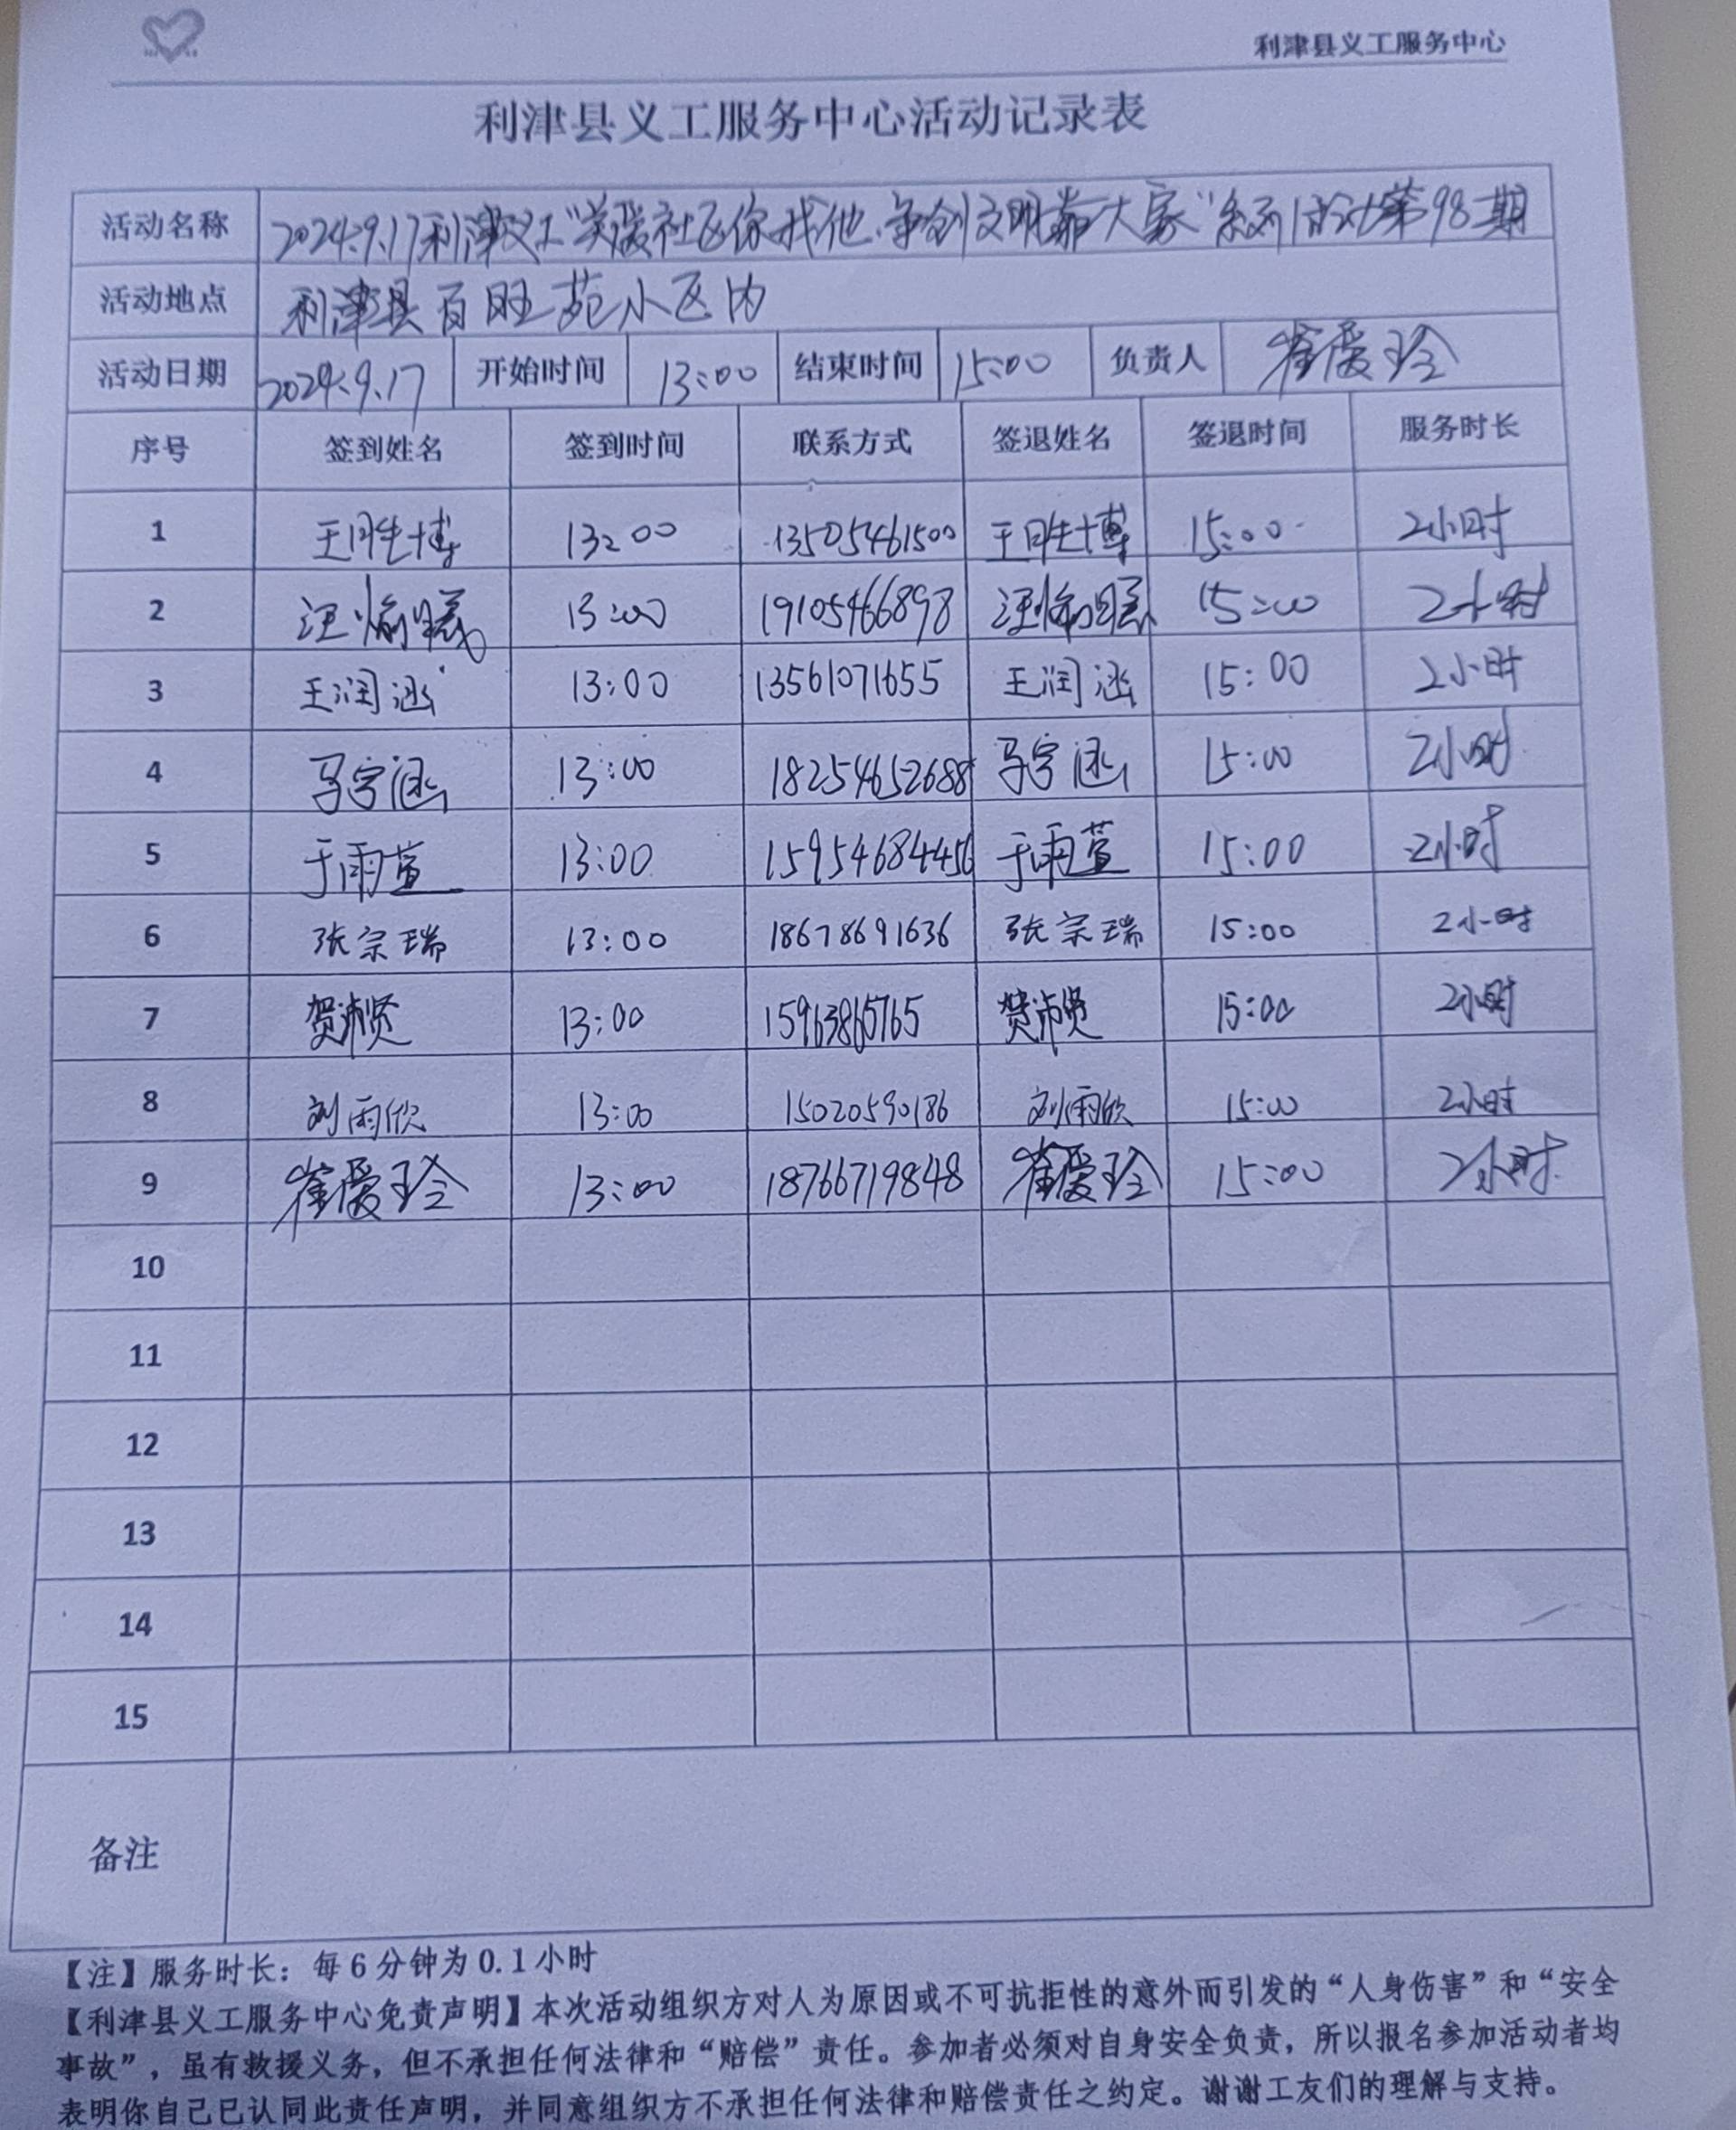 利津县义工服务中心
利津县义工服务中心活动记录表
活动名称 2024.9.17利津义工“关爱社区你我他.争创文明靠大家”系列活动第98期
活动地点 利津县百旺苑小区内
活动日期 2024.9.17 开始时间 13:00 结束时间 15:00 负责人 崔爱玲
序号 签到姓名 签到时间 联系方式 签退姓名 签退时间 服务时长
1 王胜博 13:00 13505461500 王胜博 15:00 2小时
2 汪愉曦 13:00 19105466898 汪愉曦 15:00 2小时
3 王润涵 13:00 13561071655 王润涵 15:00 2小时
4 马宇涵 13:00 18254652688 马宇涵 15:00 2小时
5 于雨萱 13:00 15954684456 于雨萱 15:00 2小时
6 张宗瑞 13:00 18678691636 张宗瑞 15:00 2小时
7 贺沛贤 13:00 15963865765 贺沛贤 15:00 2小时
8 刘雨欣 13:00 15020590186 刘雨欣 15:00 2小时
9 崔爱玲 13:00 18766719848 崔爱玲 15:00 2小时
10
11
12
13
14
15
备注
【注】服务时长：每6分钟为0.1小时
【利津县义工服务中心免责声明】本次活动组织方对人为原因或不可抗拒性的意外而引发的“人身伤害”和“安全
事故”，虽有救援义务，但不承担任何法律和“赔偿”责任。参加者必须对自身安全负责，所以报名参加活动者均
表明你自己已认同此责任声明，并同意组织方不承担任何法律和赔偿责任之约定。谢谢工友们的理解与支持。